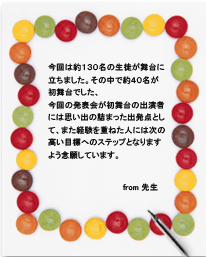 今回は約１３０名の生徒が舞台に
立ちました。その中で約４０名が
初舞台でした、
今回の発表会が初舞台の出演者
には思い出の詰まった出発点とし
て、また経験を重ねた人には次の
高い目標へのステップとなります
よう念願しています。
from 先生